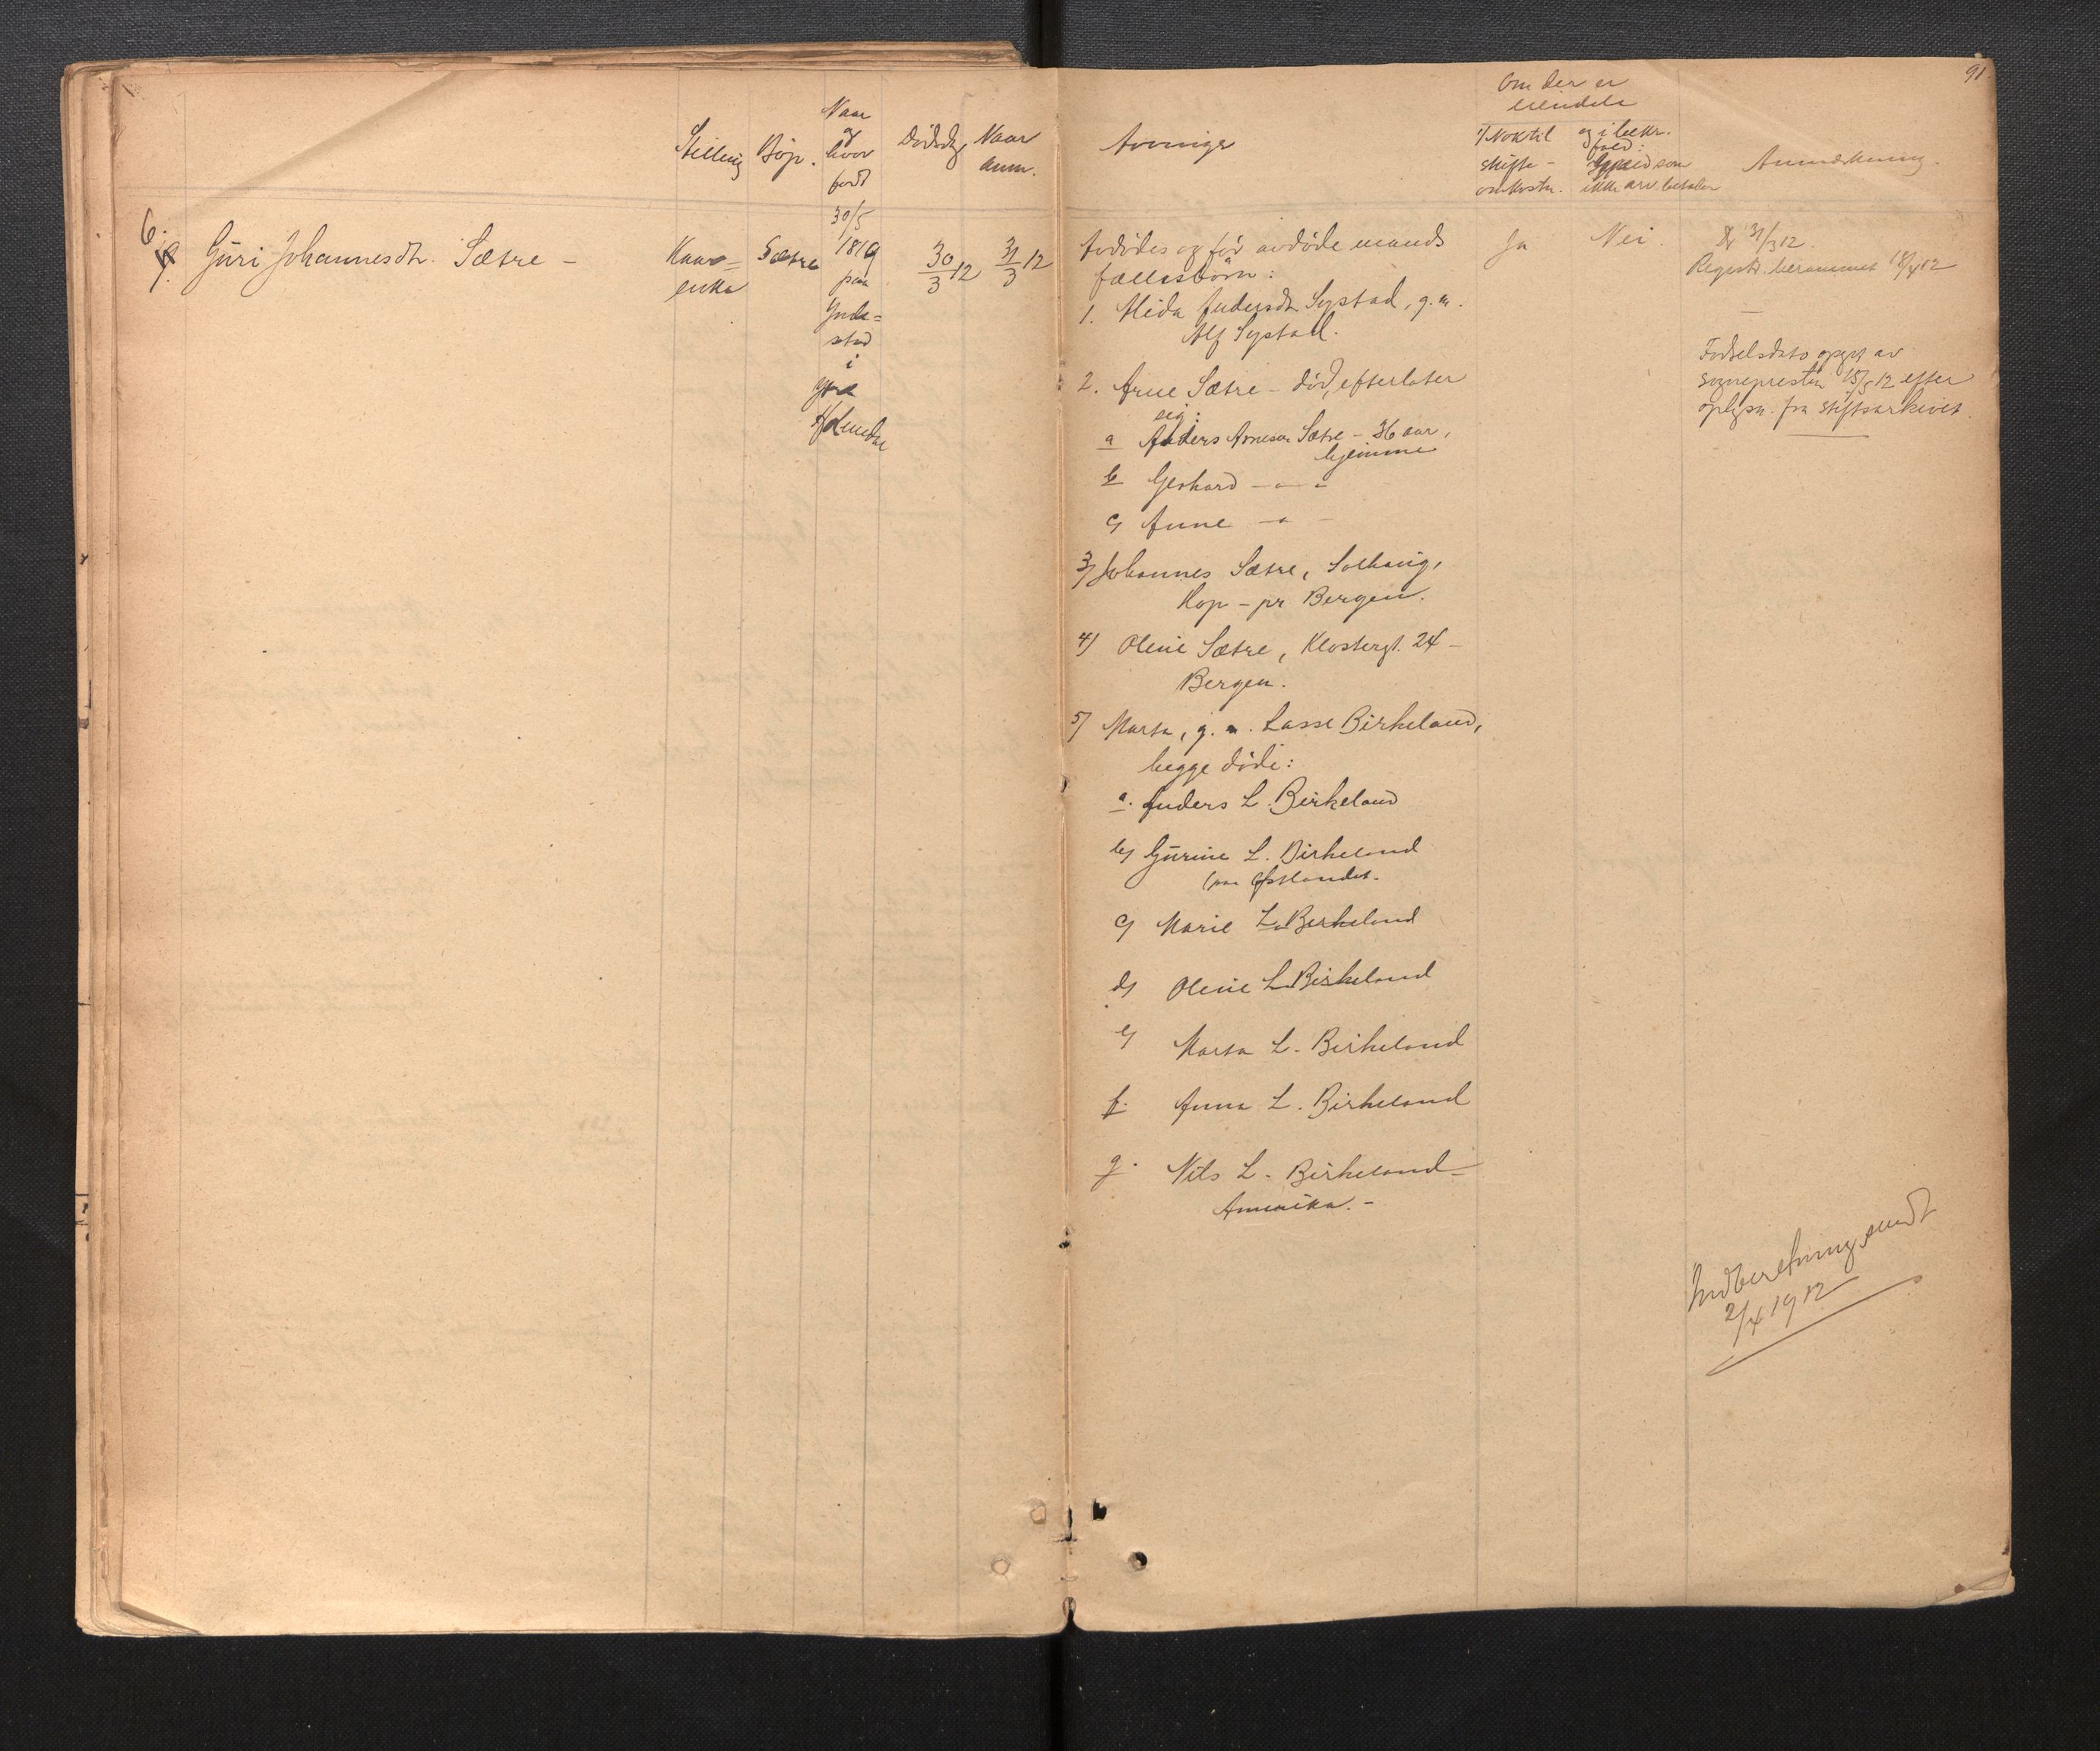 Stilling
Bop.
Naar
og
hvor
født
Dødsdg
Naar
anm.
6.
9.
Guri Johannesdtr. Sætre –
Kaar=
enke
Sætre
30/5
1819
paa
Inde=
stad
i
ytre
Holmedal
30/3 12
31/3 12
91
Arvinger
Om der er
eiendele
1/ Nok til
skifte-
omkostn.
og i bekr.
fald:
som
ikke arv. betaler
Anmerkning.
Avdødes og før avdøde mands
fællesbørn:
1. Andersdtr Systad, g. m.
Alf Systad.
2. Arne Sætre – død, efterlater
sig:
a Anders Arnesen Sætre – 36 aar,
hjemme
b Gerhard — " — "
c) Anne — " —
3/ Johannes Sætre, Solhaug,
Hop – pr Bergen.
4) Oline Sætre, Klostergt. 24 –
Bergen.
5/ Marta, g. m. Lasse Birkeland,
begge døde:
a. Anders L. Birkeland
b) Gurine L. Birkeland
paa Østlandet.
c) Marie L. Birkeland
d) Oline L. Birkeland
e) Marta L. Birkeland
f. Anna L. Birkeland
g. Nils L. Birkeland –
Amerika. –
Ja
Nei.
31/3 12.
Registr. berammet 18/4 12
Fødselsdato opgit av
sognepresten 15/5 12 efter
oplysn. fra stiftsarkivet.
Indberetning sendt
2/4 1912